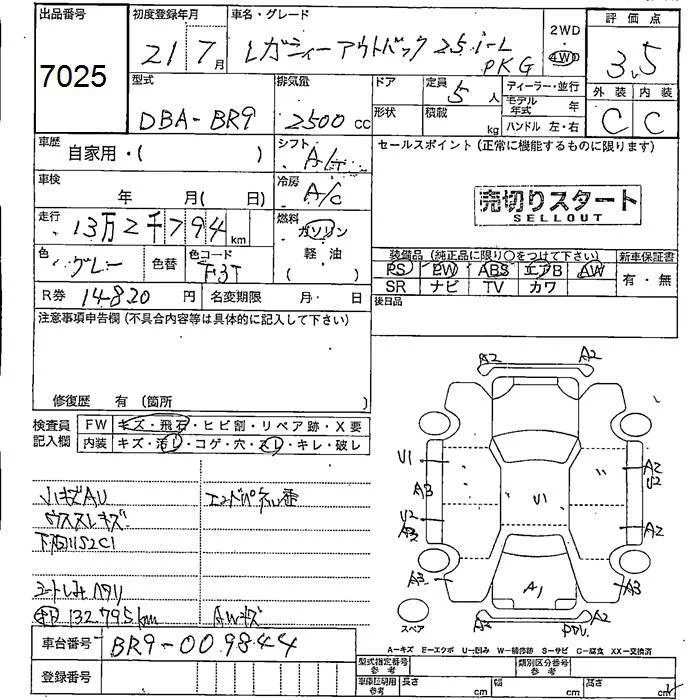 出品番号
7025
初度登録年月
21 7月
車名・グレード
レガシィーアウトバック 2.5i-L
PKG
2WD
4WD
評価点
3.5
外装 内装
C C
型式
DBA-BR9
排気量
2500 cc
ドア
定員
5 人
形状
積載
kg
ディーラー・並行
モデル年式 年
ハンドル 左・右
車歴
自家用・( )
シフト
A/T
セールスポイント(正常に機能するものに限ります)
売切りスタート
SELLOUT
車検
年 月( 日)
冷房
A/C
走行
13万2千794 km
燃料
ガソリン
軽・油
( )
色
グレー
色替
色コード
R券 14820 円
名変期限 月・ 日
装備品(純正品に限り〇をつけて下さい)
PS PW ABS エアB AW
SR ナビ TV カワ
新車保証書
有・無
後日品
注意事項申告欄(不具合内容等は具体的に記入して下さい)
修復歴 有(箇所 )
検査員
記入欄
FW キズ・飛石・ヒビ割・リペア跡・X要
内装 キズ・汚レ・コゲ・穴・スレ・キレ・破レ
ウススレキズ
シートしみヘタリ
132.795km
AWキズ
A2 A2
U1
A3
U2
A3
A3
U1
A1
A2
U2
A2
A3
A2
スペア
車台番号 BR9-009844
登録番号
A-キズ E-エクボ U-凹み W-補修跡 S-サビ C-腐食 XX-交換済
型式指定番号
参考
類別区分番号
参考
車庫証明用
参考
長さ cm
幅 cm
高さ cm